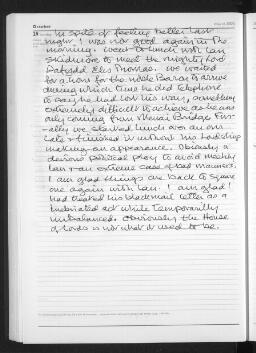 October
In spite of feeling better last
night I was no good again in the
morning. Went to lunch with Ian
Skidmore to meet the mighty Lord
Dafydd Elis Thomas. We waited
for 2 hours for the noble Baron to arrive
during which time he did telephone
to say he had lost his way, something
extremely difficult to achieve as he was
only coming from Menai Bridge. Fin-
-ally we started lunch over an hour
late & finished it without his Lordship
making an appearance. Obviously a
devious political ploy to avoid meeting
Ian & an extreme case of bad manners.
I am glad things are back to square
one again with Ian. I am glad I
had treated his blackmail letter as a
inebriated act while temporarily
unbalanced. Obviously the House
of Lords is not what it used to be.